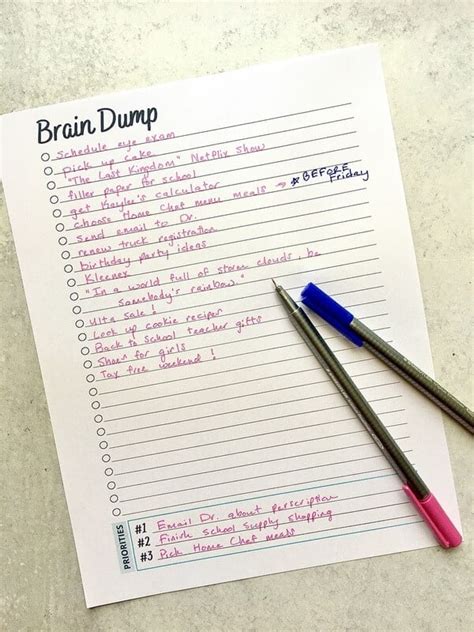 Brain Dump
Schedule eye exam
Pick up cake
"The Last Kingdom" Netflix show
filler paper for school
get Kaylee's calculator
choose Home Chef menu meals → * BEFORE Friday
Send email to Dr.
renew truck registration
birthday party ideas
Kleenex
"In a world full of storm clouds, be
somebody's rainbow."
Ulta sale!
Look up cookie recipes
Back to school teacher gifts
Shoes for girls
Tax free weekend!
PRIORITIES
#1 Email Dr. about perscription
#2 Finish school supply shopping
#3 Pick Home Chef meals